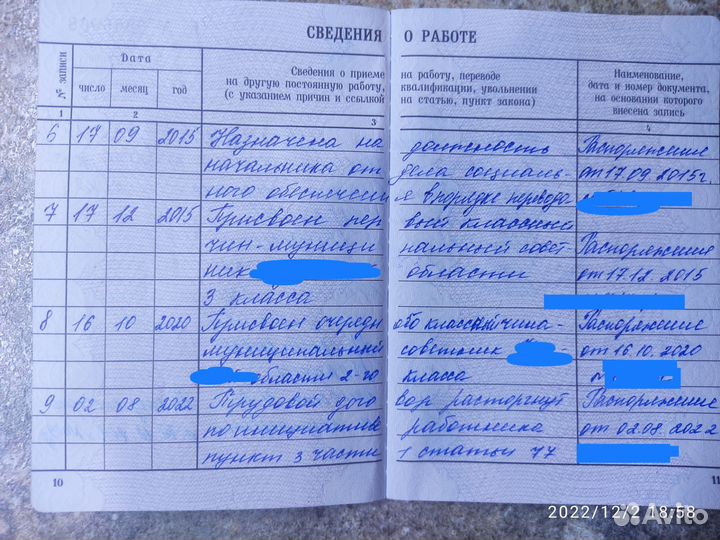 СВЕДЕНИЯ О РАБОТЕ
№ записи
Дата
число месяц год
Сведения о приеме на работу, переводе
на другую постоянную работу, квалификации, увольнении
(с указанием причин и ссылкой на статью, пункт закона)
Наименование,
дата и номер документа,
на основании которого
внесена запись
1 2 3 4
6 17 09 2015 Назначена на должность Распоряжение
начальника отдела социаль- от 17.09.2015г.
ного обеспечения в порядке перевода
7 17 12 2015 Присвоен первый классный
чин-муниципальный совет- Распоряжение
ник области от 17.12.2015
3 класса
8 16 10 2020 Присвоен очередн ого классный чина- Распоряжение
муниципальный советник от 16.10.2020
области 2-го класса
9 02 08 2022 Трудовой договор расторгнут Распоряжение
по инициативе работника от 02.08.2022
пункт 3 части 1 статьи 77
10 11
2022/12/2 18:58
Avito